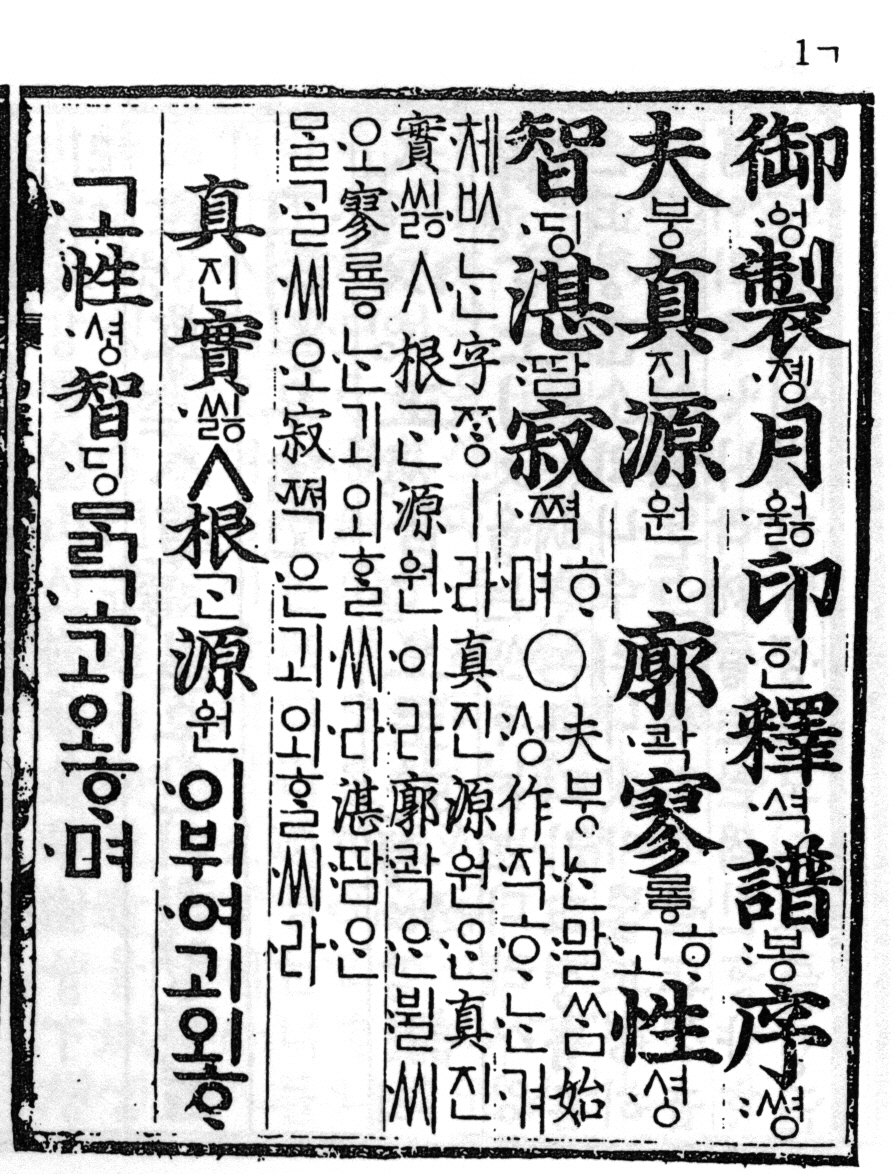 1ㄱ
御ᅌᅥᆼ製졩月ᅌᅯᇙ印ᅙᅵᆫ釋셕譜봉序쎵
夫붕真진源ᅌᅯᆫ이廓콱寥료ᇢᄒᆞ고性셩
智딩湛땀寂쪅ᄒᆞ며○夫붕는말ᄊᆞᆷ始
싱作작ᄒᆞ논겨
체ᄡᅳ는字ᄍᆞᆼㅣ라真진源ᅌᅯᆫᄋᆞᆫ真진
實씷ㅅ根ᄀᆞᆫ源ᅌᅯᆫ이라廓콱ᄋᆞᆫ뷜씨
오寥료ᇢᄂᆞᆫ괴외ᄒᆞᆯ씨라湛땀ᄋᆞᆫ
ᄆᆞᆯᄀᆞᆯ씨오寂쪅은괴외ᄒᆞᆯ씨라
真진實씷ㅅ根ᄀᆞᆫ源ᅌᅯᆫ이뷔여괴외ᄒᆞ
고性셩智딩ᄆᆞᆰ고괴외ᄒᆞ며